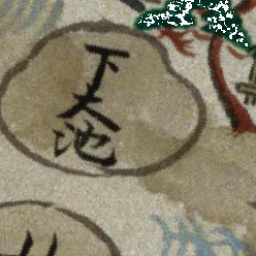 下大池